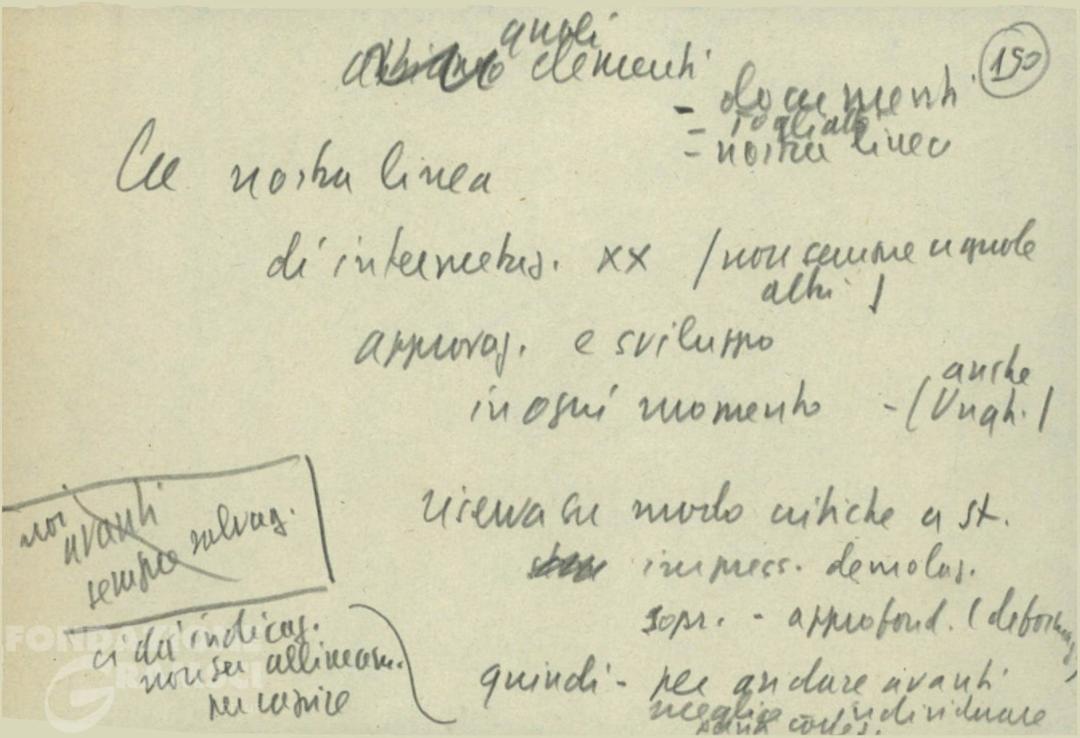 quali
elementi
150
- documenti
- Togliatti
- nostra linea
La nostra linea
di interpretaz. xx / non sempre uguale
altri /
approvaz. e sviluppo
in ogni momento - (anche
Ungh. /
riserva su modo critiche a st.
impress. demolaz.
sopr. - approfond. (deformaz.)
noi avanti
sempre salvag.
ci dà indicaz.
non su allineam.
per capire
quindi - per andare avanti
meglio individuare
FONDAZIONE
GRAMSCI